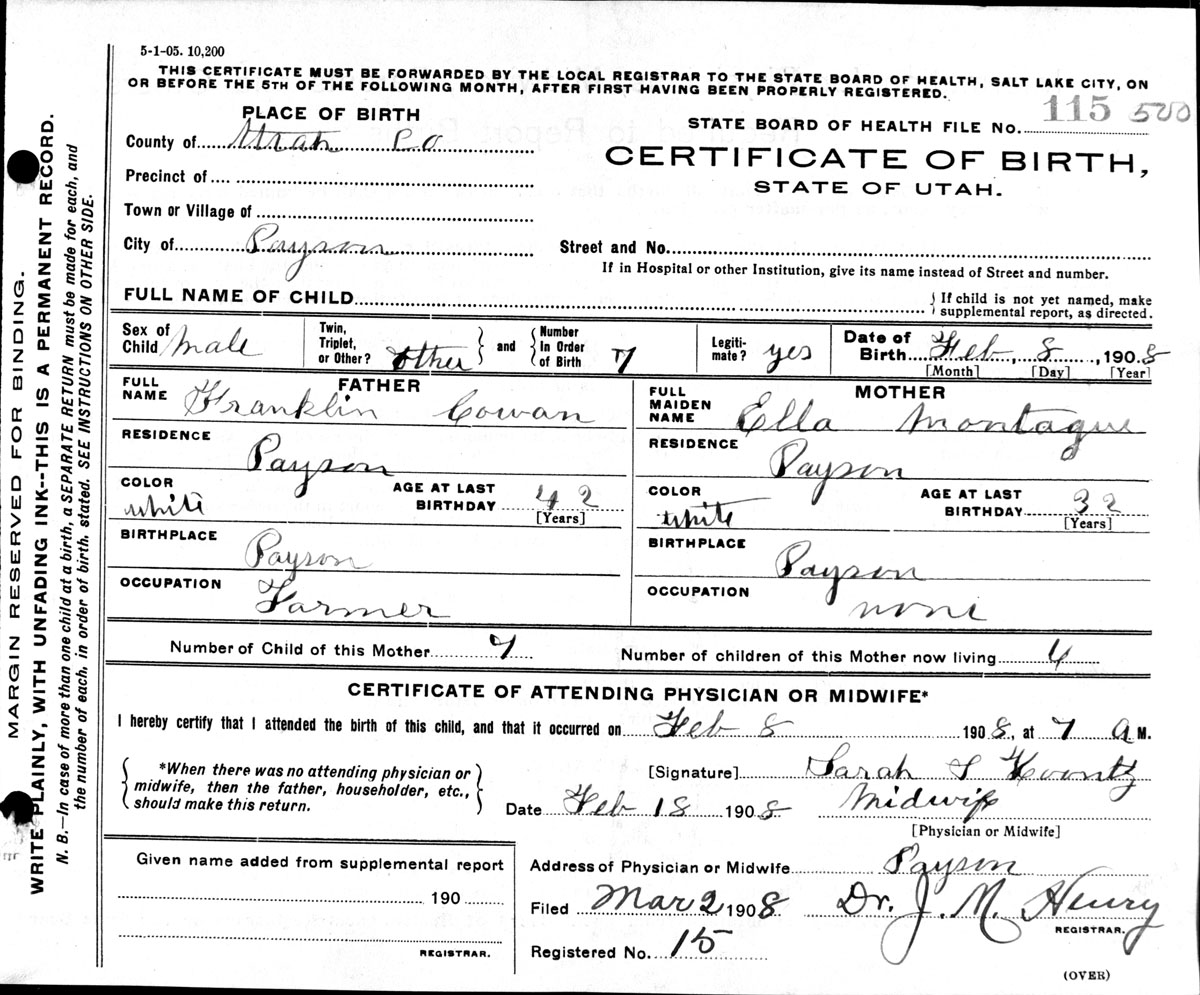 5-1-05. 10,200
THIS CERTIFICATE MUST BE FORWARDED BY THE LOCAL REGISTRAR TO THE STATE BOARD OF HEALTH, SALT LAKE CITY, ON
OR BEFORE THE 5TH OF THE FOLLOWING MONTH, AFTER FIRST HAVING BEEN PROPERLY REGISTERED.
PLACE OF BIRTH
County of Utah Co
Precinct of
Town or Village of
City of Payson
STATE BOARD OF HEALTH FILE No. 115 500
CERTIFICATE OF BIRTH,
STATE OF UTAH.
Street and No.
If in Hospital or other Institution, give its name instead of Street and number.
FULL NAME OF CHILD
{ If child is not yet named, make
supplemental report, as directed.
Sex of Child Male
Twin, Triplet, or Other? Other } and { Number In Order of Birth 7
Legiti-mate? yes
Date of Birth Feb, 8, 1908
[Month] [Day] [Year]
FATHER
FULL NAME Franklin Cowan
RESIDENCE Payson
COLOR white AGE AT LAST BIRTHDAY 42
[Years]
BIRTHPLACE Payson
OCCUPATION Farmer
MOTHER
FULL MAIDEN NAME Ella Montague
RESIDENCE Payson
COLOR white AGE AT LAST BIRTHDAY 32
[Years]
BIRTHPLACE Payson
OCCUPATION none
Number of Child of this Mother 7 Number of children of this Mother now living 4
CERTIFICATE OF ATTENDING PHYSICIAN OR MIDWIFE*
I hereby certify that I attended the birth of this child, and that it occurred on Feb 8 1908, at 7 A M.
{ *When there was no attending physician or
midwife, then the father, householder, etc.,
should make this return. }
[Signature] Sarah S Koontz
Date Feb 18 1908 Midwife
[Physician or Midwife]
Given name added from supplemental report
190
REGISTRAR.
Address of Physician or Midwife Payson
Filed Mar 2 1908 Dr. J. M. Henry
REGISTRAR.
Registered No. 15
(OVER)
MARGIN RESERVED FOR BINDING.
WRITE PLAINLY, WITH UNFADING INK--THIS IS A PERMANENT RECORD.
N. B.—In case of more than one child at a birth, a SEPARATE RETURN must be made for each, and
the number of each, in order of birth, stated. SEE INSTRUCTIONS ON OTHER SIDE.